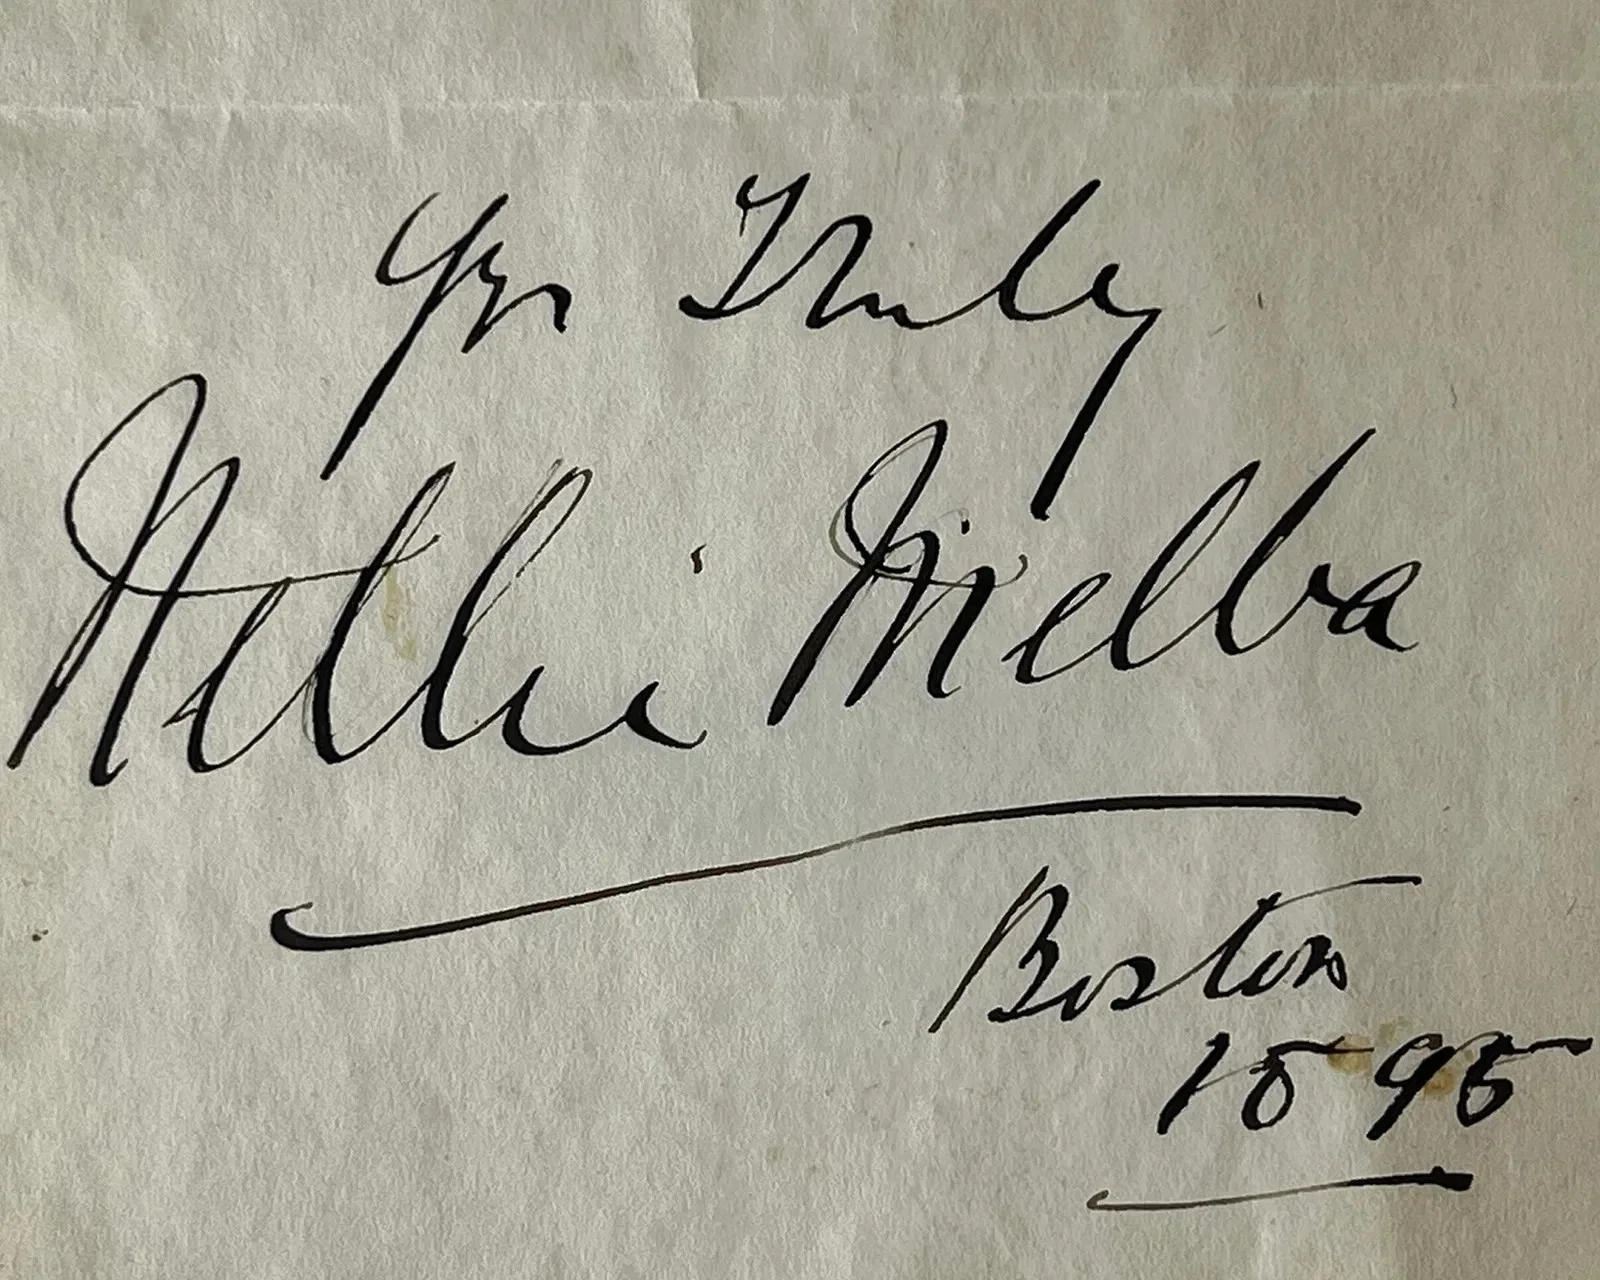 Yrs Truly
Nellie Melba
Boston
1895